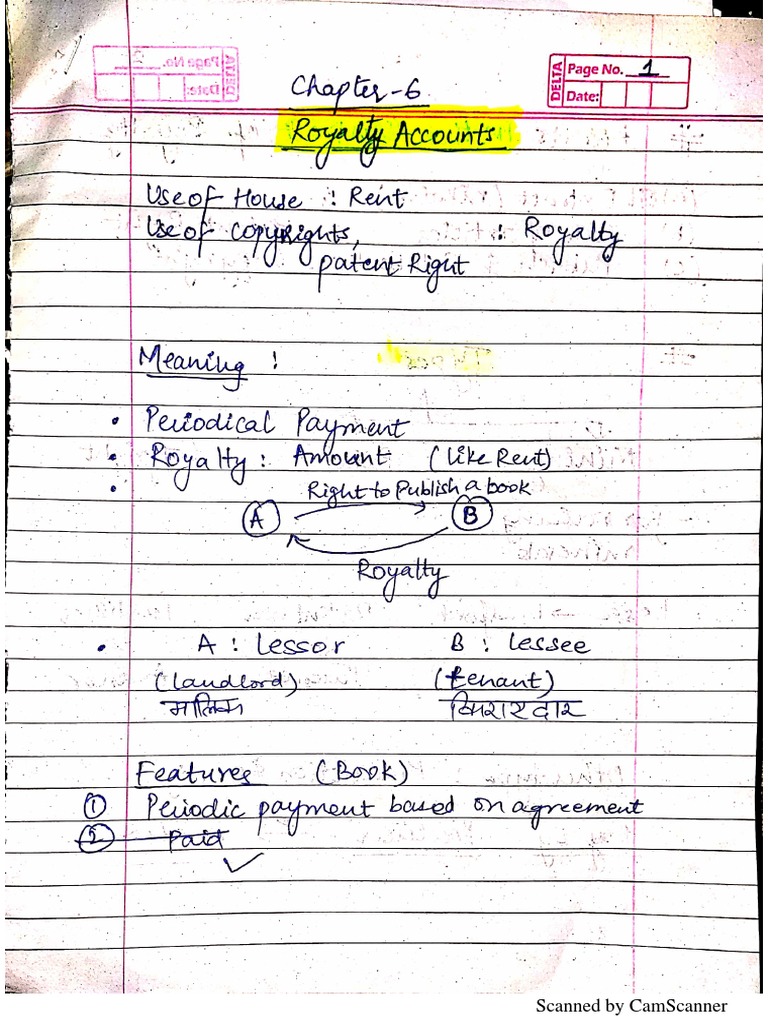 DELTA
Page No. 1
Date:
Chapter-6
Royalty Accounts
Use of House : Rent
Use of Copyrights, : Royalty
patent Right
Meaning :
• Periodical Payment
• Royalty : Amount (like Rent)
• Right to Publish a book
A B
Royalty
• A : Lessor B : Lessee
(landlord) (tenant)
मालिक किरायेदार
Features (Book)
① Periodic payment based on agreement
② Paid
Scanned by CamScanner